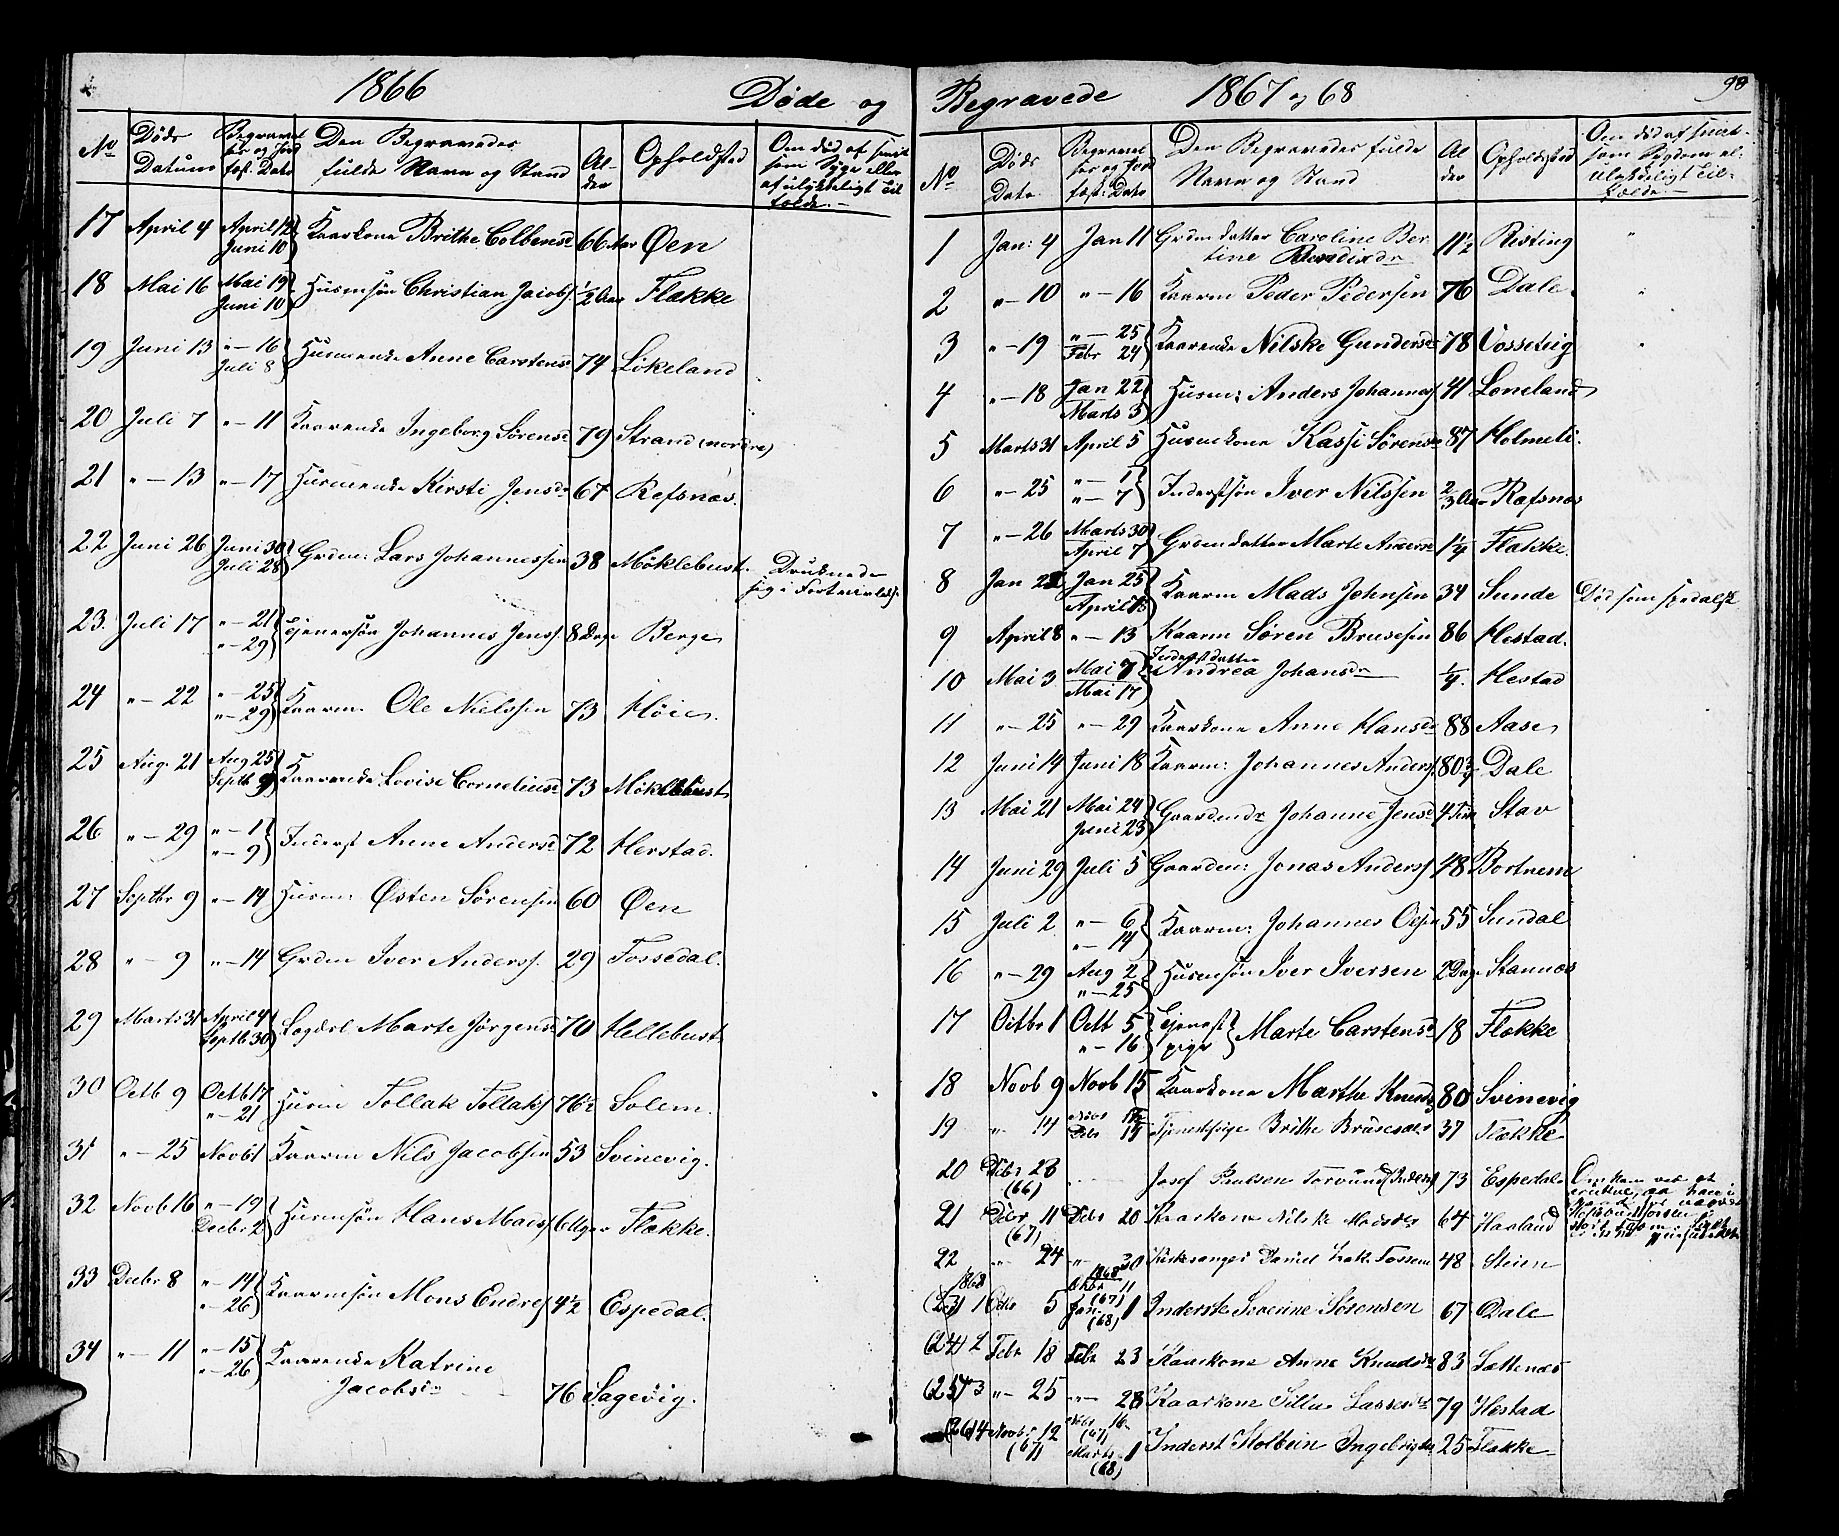 1866 Døde og
No Døds Datum Begravel ses og Jord fest. Dato Den Begravedes fulde Navn og Stand Al- der Opholdsted Om død af smit som Syge eller af ulykkeligt Til fælde.
17 April 4 April 12 Juni 10 Kaarkone Brithe Colbensd 66 Aar Øen
18 Mai 16 Mai 19 Juni 10 Husmsøn Christian Jacobs. ½ Aar Flakke
19 Juni 13 "-16 Juli 8 Husmenke Anne Carstensd 74 Løkeland
20 Juli 7 "-11 Kaarenke Ingeborg Sørensd 79 Strand (nordre)
21 "-13 "-17 Husmenke Kirsti Jensd 67 Refsnæs.
22 Juni 26 Juni 30 Juli 28 Grdm: Lars Johannessen 38 Møklebust. Druknede sig i Fortvivlelse
23. Juli 17 "-21 "-29 Tjenersøn Johannes Jenss. 8 Dage Berge
24 "-22 "-25 "-29 Kaarm. Ole Nielssen 73 Høie.
25 Aug. 21 Aug 25 Septb 9 Kaarenke Lovise Corneliusd 73 Møklebust
26 "-29 "-1 "-9 Inderst Anne Andersd 72 Herstad.
27 Septbr 9 "-14 Husm: Østen Sørensen 60 Øen
28 "-9 "-14 Grdm Iver Anderss. 29 Fossedal.
29 Marts 31 April 4 Sep 16 30 Lægdsl Marte Jørgensd 70 Hellebust
30 Octb 9 Octb 17 "-21 Husm Tollak Tollaks 76½ Solem.
31 "-25 Novb 1 Kaarm Nils Jacobsen 53 Svinevig.
32 Novb 16 "-19 Decbr 2 Husmsøn Hans Mads 6 Uger Flakke.
33 Decbr 8 "-14 "-26 Kaarmsøn Mons Endres 4½ Espedal.
34 "-11 "-15 "-26 Kaarenke Katrine
Jacobsd 76 Sagevig.
Begravede 1867 og 68 98
No Døds Dato Begravel ses og Jord fest: Dato Den Begravedes fulde Navn og Stand Al der Opholdsted Om død af smit- som Sygdom el: ulykkeligt Til- fælde.
1 Jan: 4 Jan 11 Grdm datter Caroline Ber tine Bendixdr 11½ Risting "
2 "-10 "-16 Kaarm Peder Pedersen 76 Dale. "
3 "-19 "-25 Febr 24 Kaarenke Nilske Gundersd 78 Vossevig "
4 "-18 Jan 22 Marts 3 Husm: Anders Johannes 41 Loneland
5 Marts 31 April 5 Husmkone Kassi Sørensd 87 Holmeli.
6 "-25 "-1 "-7 Inderstsøn Iver Nilssen ⅔ Aar Refsnæs
7 "-26 Marts 30 April 7 Grdmdatter Marte Andersd 1¼ Flakke.
8 Jan 21 Jan 25 April Kaarm Mads Johnsen 34 Sunde Død som spedalsk
9 April 8 "-13 Kaarm Søren Brusesen 86 Hestad.
10 Mai 3 Mai 7 Mai 17 Inderstdatter Andrea Johansdr ¼. Hestad
11 "-25 "-29 Kaarkone Anne Hansd 88 Aase
12 Juni 14 Juni 18 Kaarm: Johannes Anders. 80¾ Dale
13 Mai 21 Mai 24 Juni 23 Gaardmdr Johanne Jensd 4 Tim Stav
14 Juni 29 Juli 5 Gaardm: Jonas Anders 48 Bortnem
15 Juli 2 "-6 "-14 Kaarm: Johannes 55 Sundal
16 "-29 Aug 2 "-25 Husmsøn Iver Iversen 2 Dage Stannes
17 Octbr 1 Octb 5 "-16 Tjenest pige Marte Carstensd 18 Flokke
18 Novb 9 Novb 15 Kaarkone Marthe Knudsd 80 Svinevig
19 " 14 Novbr Debr Tjenestpige Brithe Brusesdr 37 Flekke
20 Debr 28 (66) Josef Paulsen Torvund (Inderst) 73 Espedal Omkom ved at
21 Debr 11 (67) Debr 20 Kaarkone Nilske Madsdr 64 Haaland
22 " 24 "-30 Kirkesanger Daniel Fossem 48 Steien
1868 (23) 1 Octbr 5 1868 Oktbr 11 (67) Jan. 1 (68) Inderste Severine Sørensen 67 Dale
(24) 2 Febr 18 Febr 23 Kaarkone Anne Knudsdr 83 Sættenæs
(25) 3 "-25 "-28 Kaarkone Lassesdr 79 Hestad
(26) 4 Novbr 12 (67) Novbr 16 (67) Marts 1 (68) Inderst Holbein Ingebrigts 25 Flakke